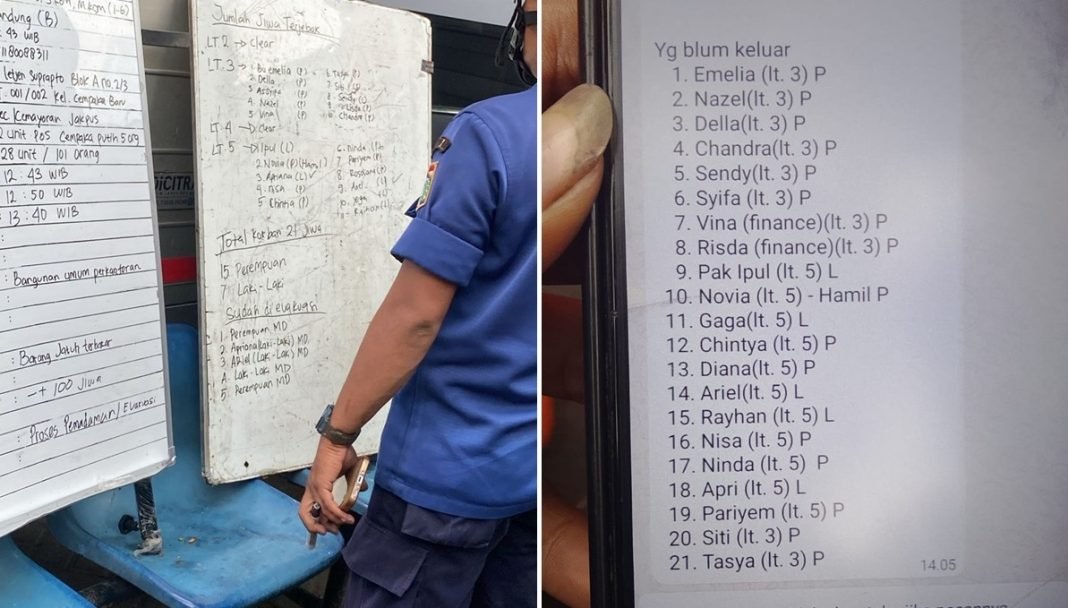 M.kom (1-6)
andung (B)
43 WIB
1180088311
letjen Suprapto Blok A no. 2/3
001/002 Kel. Cempaka Baru
Kemayoran Jakpus
2 unit Pos Cempaka putih 5 org
28 unit / 101 orang
12 : 43 WIB
12 : 50 WIB
: 13 : 40 WIB
:
:
: Bangunan umum perkantoran
:
:
: Barang Jatuh terbakar
: -+ 100 Jiwa
: Proses Pemadaman / Evakuasi
Jumlah Jiwa Terjebak
LT 2 → Clear
LT. 3 → 1. Bu emelia (P)
2. Della (P)
3 (P)
4. Nazel (P)
5 Vina (P)
6. Tasya (P)
7. Siti (P)
8. Sendy
Chandra (P)
LT. 4 → Clear
LT. 5 → 1 Ipul (L)
2. Novia (P) (Hamil)
3. Apriana (L) ✓
4. nisa (P)
5 Chintya (P)
6. Ninda
7. Pariyem (P)
8.
9.
10.
Total Korban 21 Jiwa
15 Perempuan
7 Laki - Laki
Sudah di evakuasi
1. Perempuan MD
2. Apriana (Laki-Laki) MD
3. Ariel (Laki-Laki) MD
4. Laki-Laki MD
5. Perempuan MD
DICITRA
Yg blum keluar
1. Emelia (lt. 3) P
2. Nazel(lt. 3) P
3. Della(lt. 3) P
4. Chandra(lt. 3) P
5. Sendy(lt. 3) P
6. Syifa (lt. 3) P
7. Vina (finance)(lt. 3) P
8. Risda (finance)(lt. 3) P
9. Pak Ipul (lt. 5) L
10. Novia (lt. 5) - Hamil P
11. Gaga(lt. 5) L
12. Chintya (lt. 5) P
13. Diana(lt. 5) P
14. Ariel(lt. 5) L
15. Rayhan (lt. 5) L
16. Nisa (lt. 5) P
17. Ninda (lt. 5) P
18. Apri (lt. 5) L
19. Pariyem (lt. 5) P
20. Siti (lt. 3) P
21. Tasya (lt. 3) P
14.05